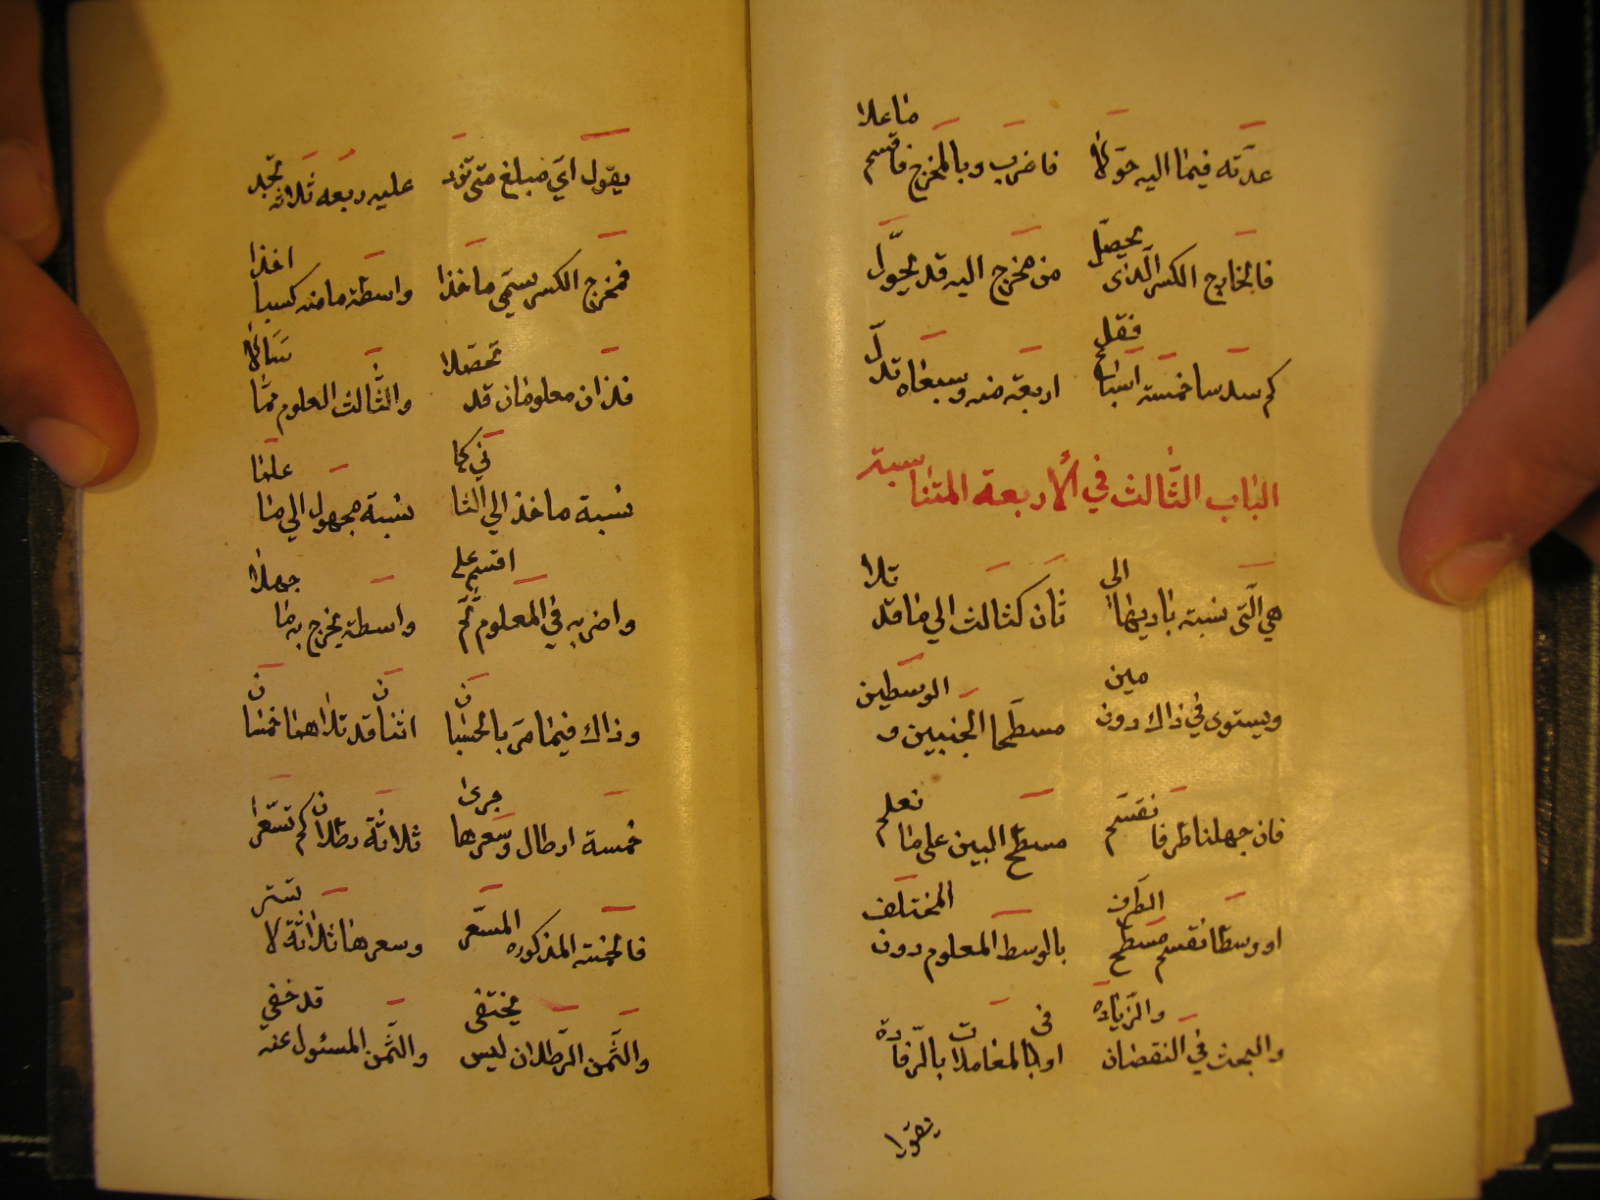 عدّته فيما اليه حوّلا فاضرب وبالمخرج فاقسم ما علا
فالخارج الكسر الّذى يحصل من مخرج اليه قد يحوّل
كم سدسا خمسة اسباع فقل اربعة منه وسبعاه تدل
الباب الثالث في الأربعة المتناسبة
هي الّتى نسبة باديها الى ثان كثالث الي ما قد تلا
ويستوى في ذاك دون مين مسطحا الجنبين و الوسطين
فان جهلنا طرفا نقسم مسطح البين على ما نعلم
او وسطا نقسم مسطح الطرف بالوسط المعلوم دون المختلف
والبحث في النقصان والزياده او بالمعاملات في
يقول
يقول اي مبلغ متى تزد عليه ربعه ثلاثه تجد
فمخرج الكسر يسمي ماخذا واسطة ما منه كسبا اخذا
فذان معلومان قد تحصلا والثالث المعلوم مما سألا
نسبة ماخذ الي الثاني كما نسبة مجهول الي ما علما
واضربه في المعلوم ثم اقسم على واسطة يخرج به ما جهلا
وذاك فيما مر بالحسبان اثنان قد تلاهما خمسان
خمسة ارطال وسعرها جرى ثلاثة رطلان كم تسعرا
فالخمسة المذكوره المسعر وسعرها ثلاثة لا تستتر
والثمن الرطلان ليس يختفى والثمن المسئول عنه قد خفي